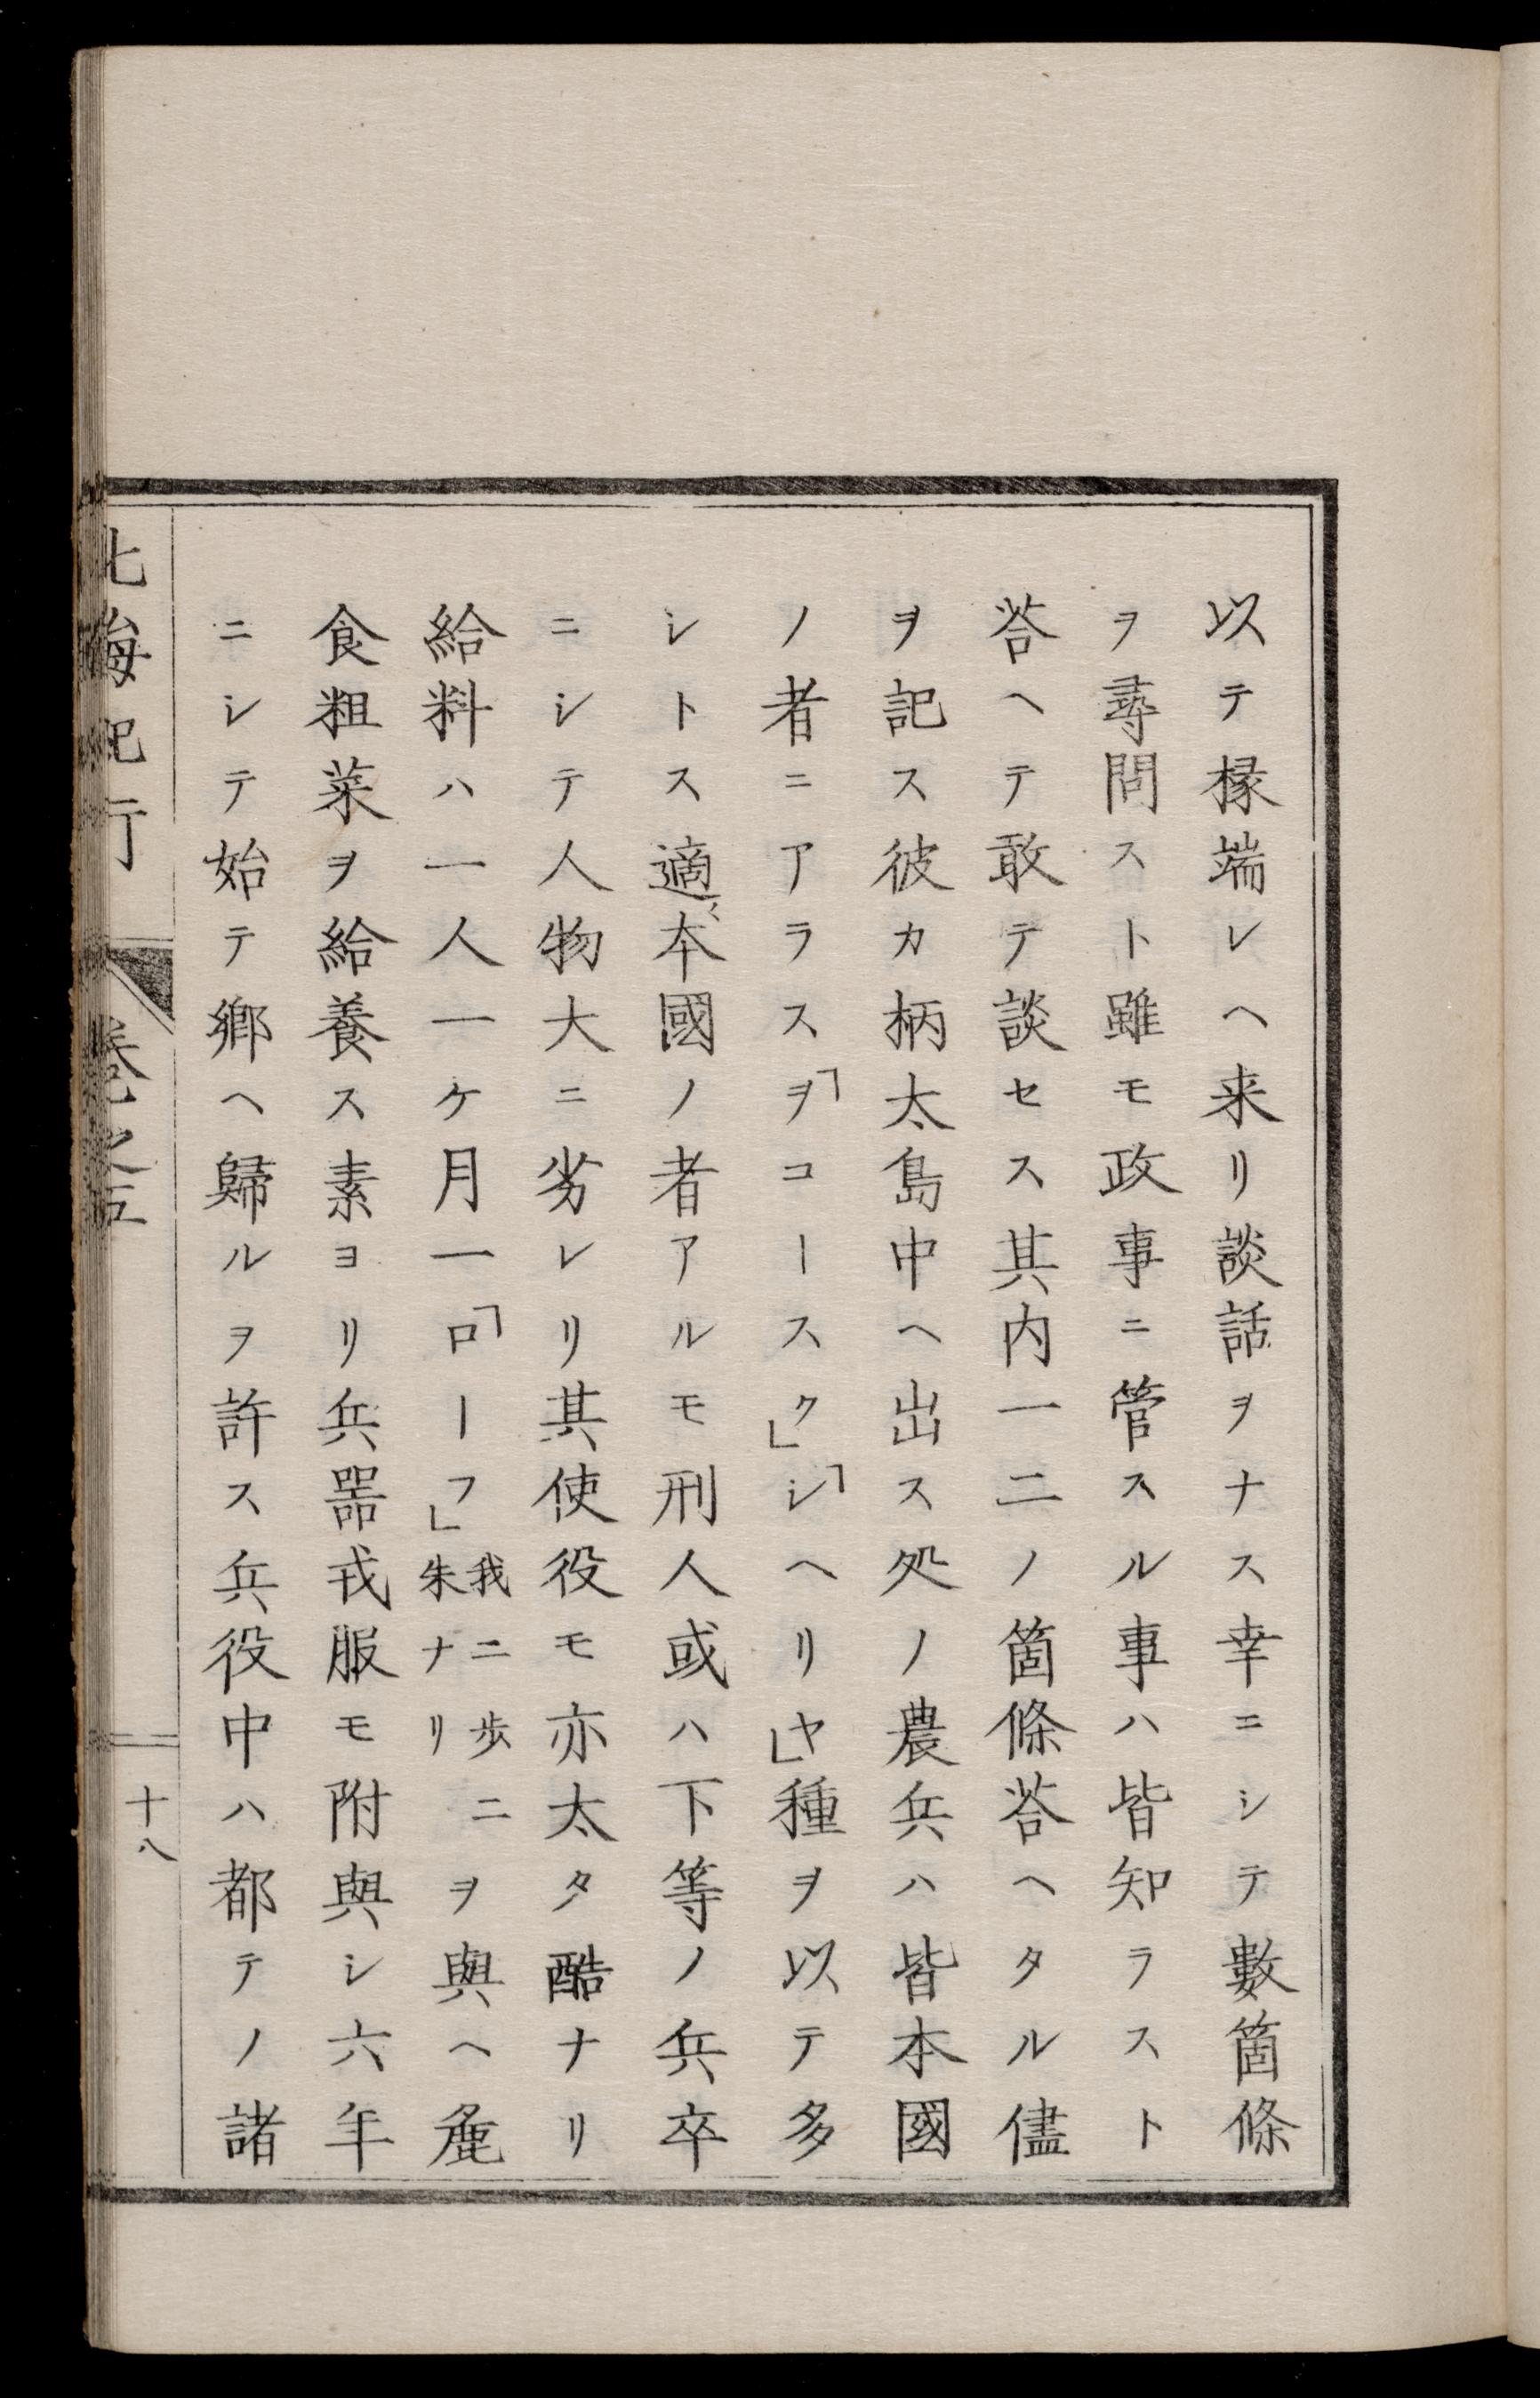 以テ椽端レヘ来リ談話ヲナス幸ニシテ數箇條
ヲ尋問スト雖モ政事ニ管スル事ハ皆知ラスト
荅ヘテ敢テ談セス其内一二ノ箇條荅ヘタル儘
ヲ記ス彼カ柄太島中ヘ出ス処ノ農兵ハ皆本國
ノ者ニアラス「ヲコースク」「シヘリヤ」種ヲ以テ多
シトス適〻本國ノ者アルモ刑人或ハ下等ノ兵卒
ニシテ人物大ニ劣レリ其使役モ亦太タ酷ナリ
給料ハ一人一ケ月一「ローフ」我ニ歩ニ朱ナリヲ與ヘ麁
食粗菜ヲ給養ス素ヨリ兵噐戎服モ附與シ六年
ニシテ始テ鄉ヘ歸ルヲ許ス兵役中ハ都テノ諸
北海紀行 卷之五 十八